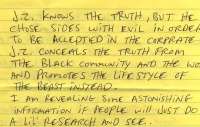 J.Z. KNOWS THE TRUTH, BUT HE
CHOSE SIDES WITH EVIL IN ORDER
TO BE ACCEPTED IN THE CORPRATE
J.Z. CONCEALS THE TRUTH FROM
THE BLACK COMMUNITY AND THE WO
AND PROMOTES THE LIFESTYLE OF
THE BEAST INSTEAD.
I AM REVEALING SOME ASTONISHING
INFORMATION IF PEOPLE WILL JUST DO
A LIL' RESEARCH AND SEE.